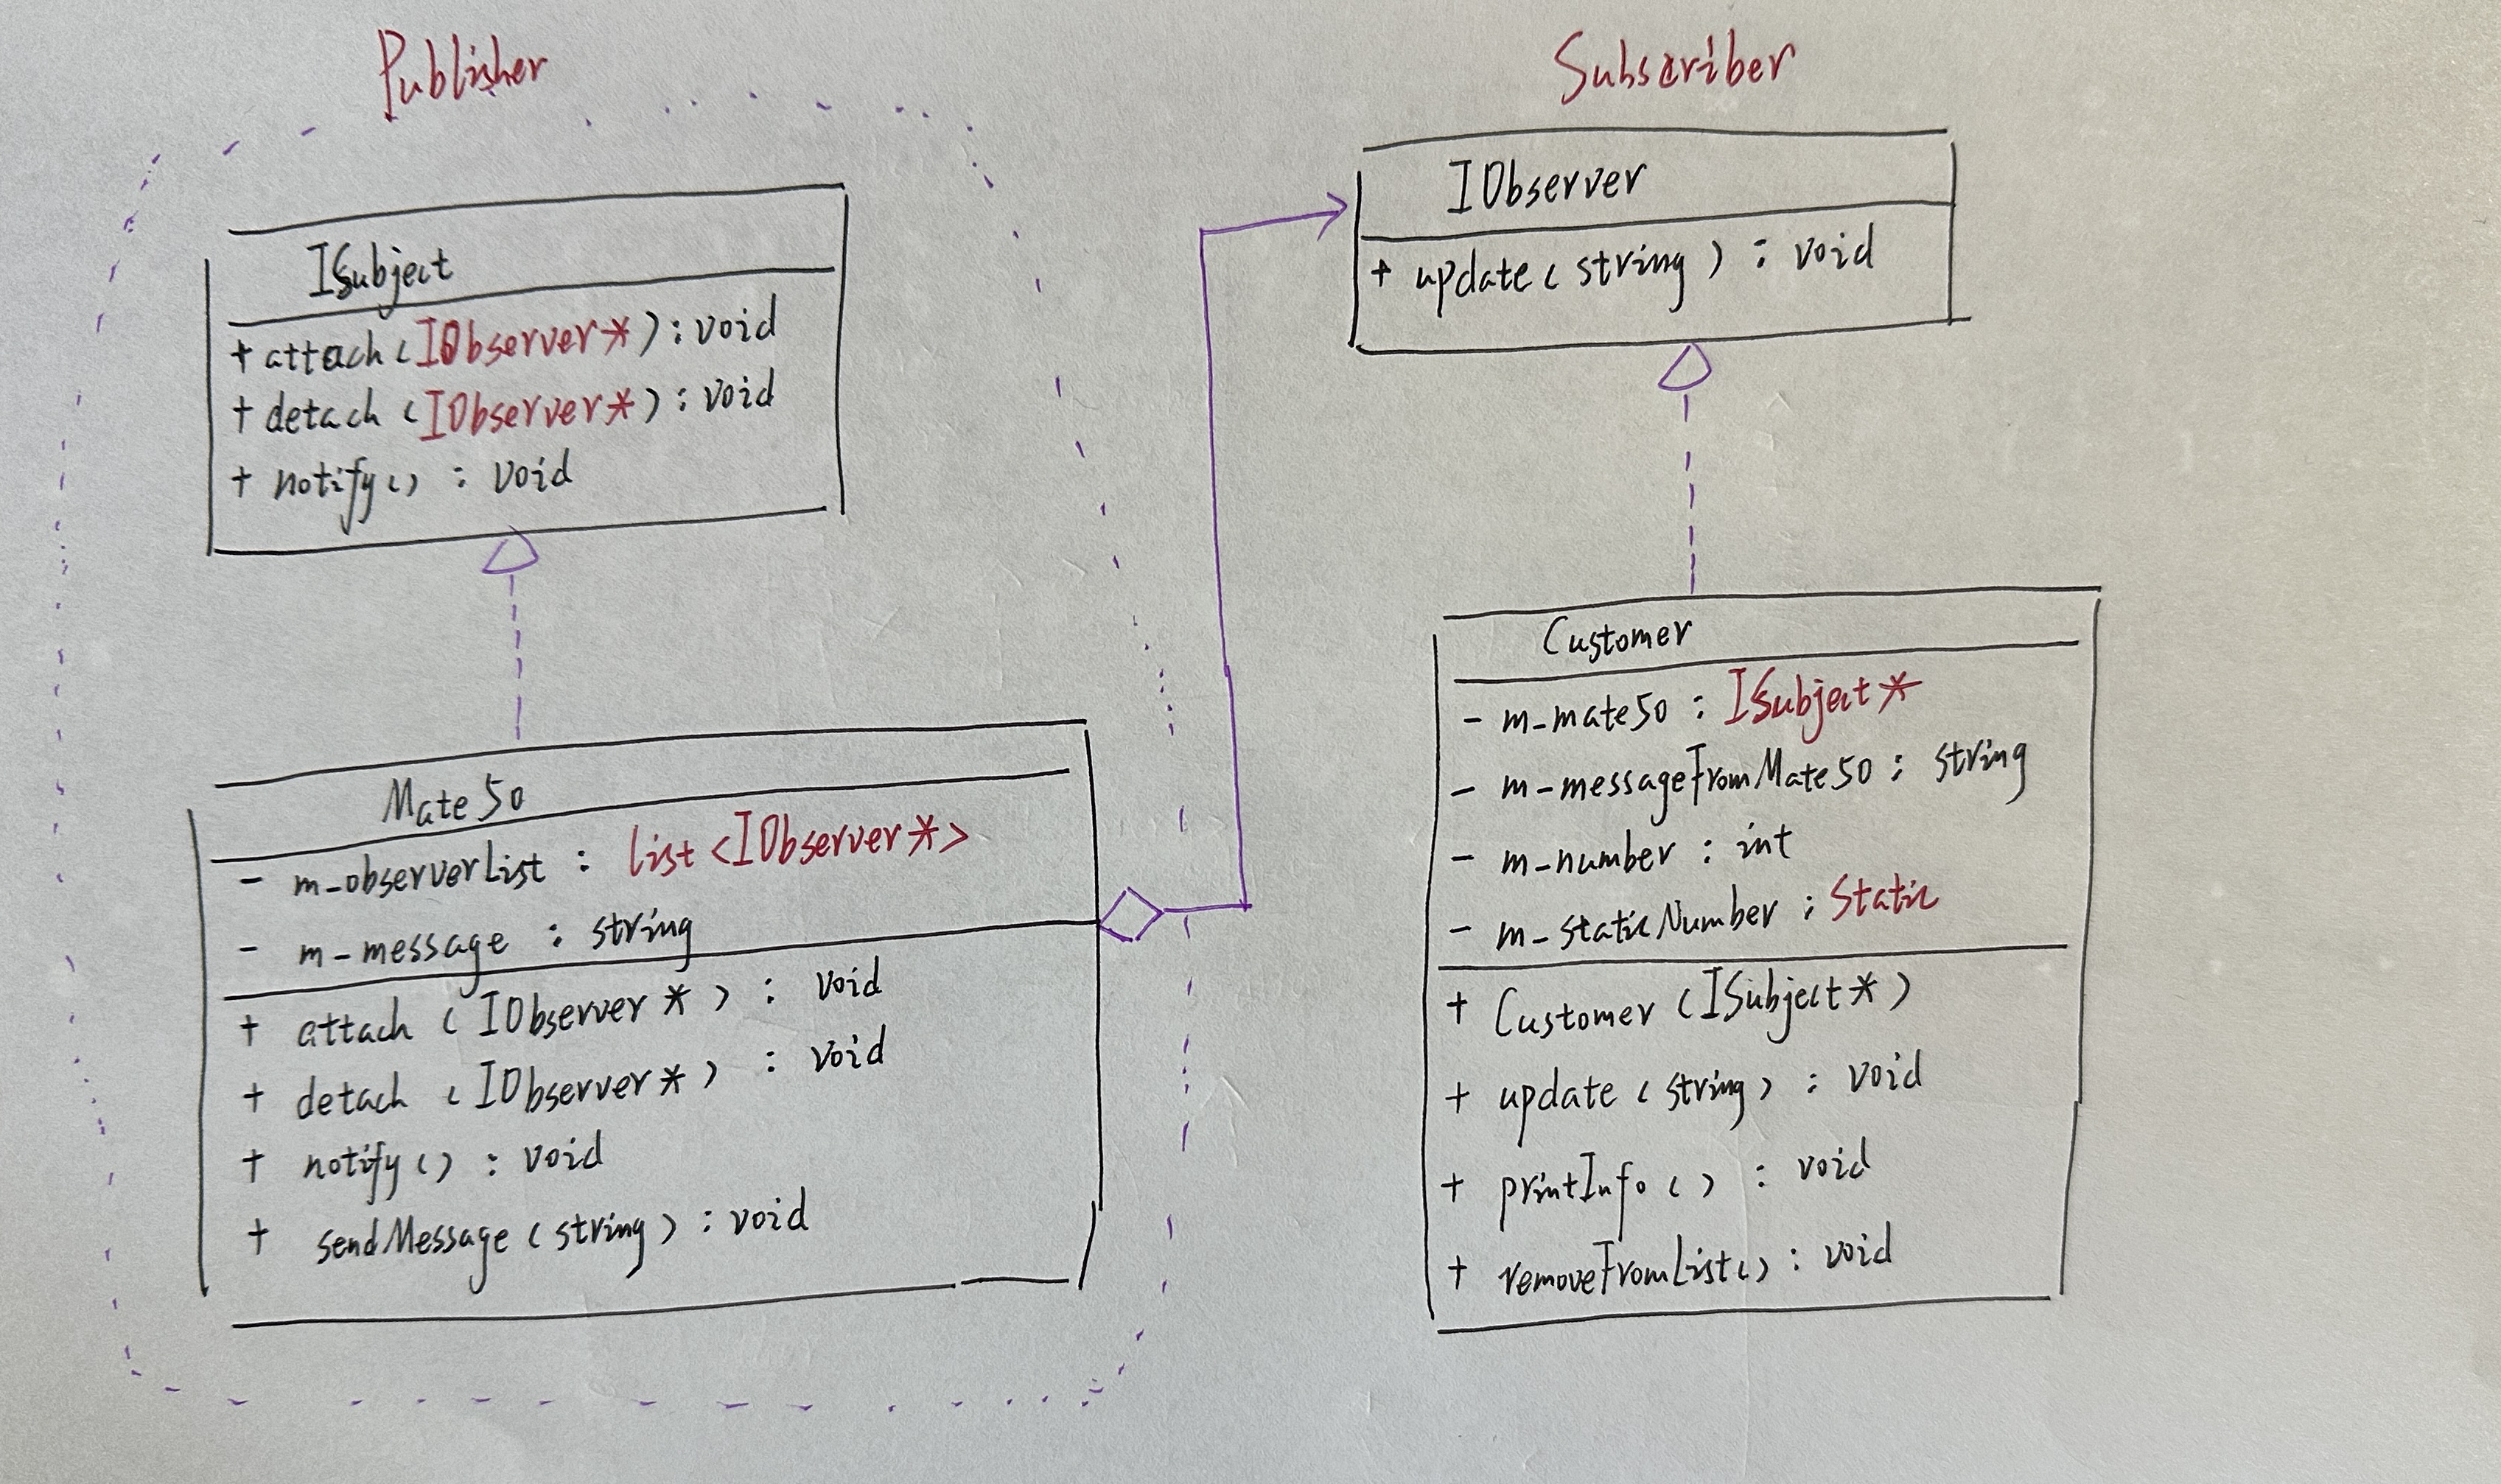 Publisher
ISubject
+ attach(IObserver*): void
+ detach(IObserver*): void
+ notify() : void
Mate50
- m_observerList : list<IObserver*>
- m_message : string
+ attach (IObserver*) : void
+ detach (IObserver*) : void
+ notify() : void
+ sendMessage(string) : void
Subscriber
IObserver
+ update(string) : void
Customer
- m_mate50 : ISubject*
- m_messageFromMate50 : string
- m_number : int
- m_staticNumber : static
+ Customer(ISubject*)
+ update(string) : void
+ printInfo() : void
+ removeFromList() : void